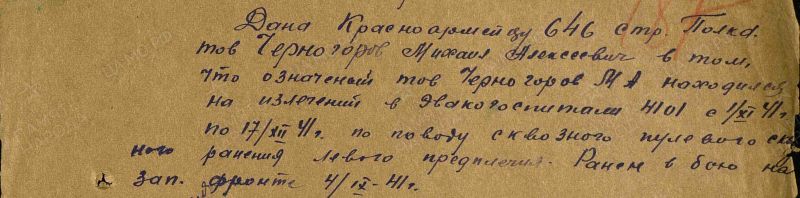 Дана Красноармейцу 646 стр. Полка.
тов Черногоров Михаил Алексеевич в том,
что означеный тов Черногоров МА находился
на излечении в Эвакогоспитали 4101 с 1/XI 41г.
по 17/XII 41г. по поводу сквозного пулевого
ного ранения левого предплечия. Ранен в бою на
зап. фронте 4/IX-41г.